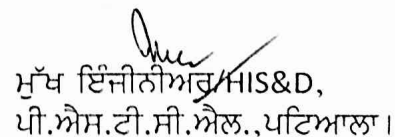 ਮੁੱਖ ਇੰਜੀਨੀਅਰ/HIS&D,
ਪੀ.ਐਸ.ਟੀ.ਸੀ.ਐਲ.,ਪਟਿਆਲਾ।